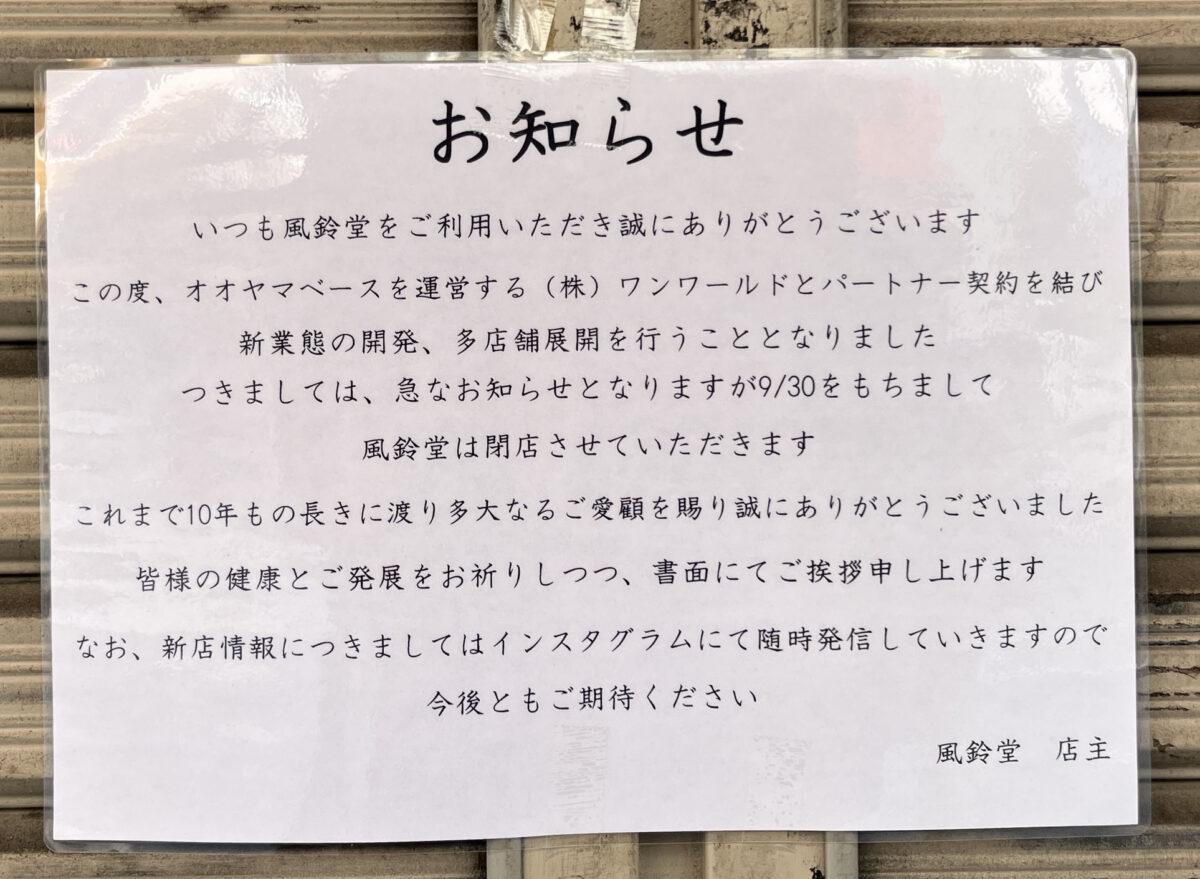 お知らせ
いつも風鈴堂をご利用いただき誠にありがとうございます
この度、オオヤマベースを運営する（株）ワンワールドとパートナー契約を結び
新業態の開発、多店舗展開を行うこととなりました
つきましては、急なお知らせとなりますが9/30をもちまして
風鈴堂は閉店させていただきます
これまで10年もの長きに渡り多大なるご愛顧を賜り誠にありがとうございました
皆様の健康とご発展をお祈りしつつ、書面にてご挨拶申し上げます
なお、新店情報につきましてはインスタグラムにて随時発信していきますので
今後ともご期待ください
風鈴堂　店主